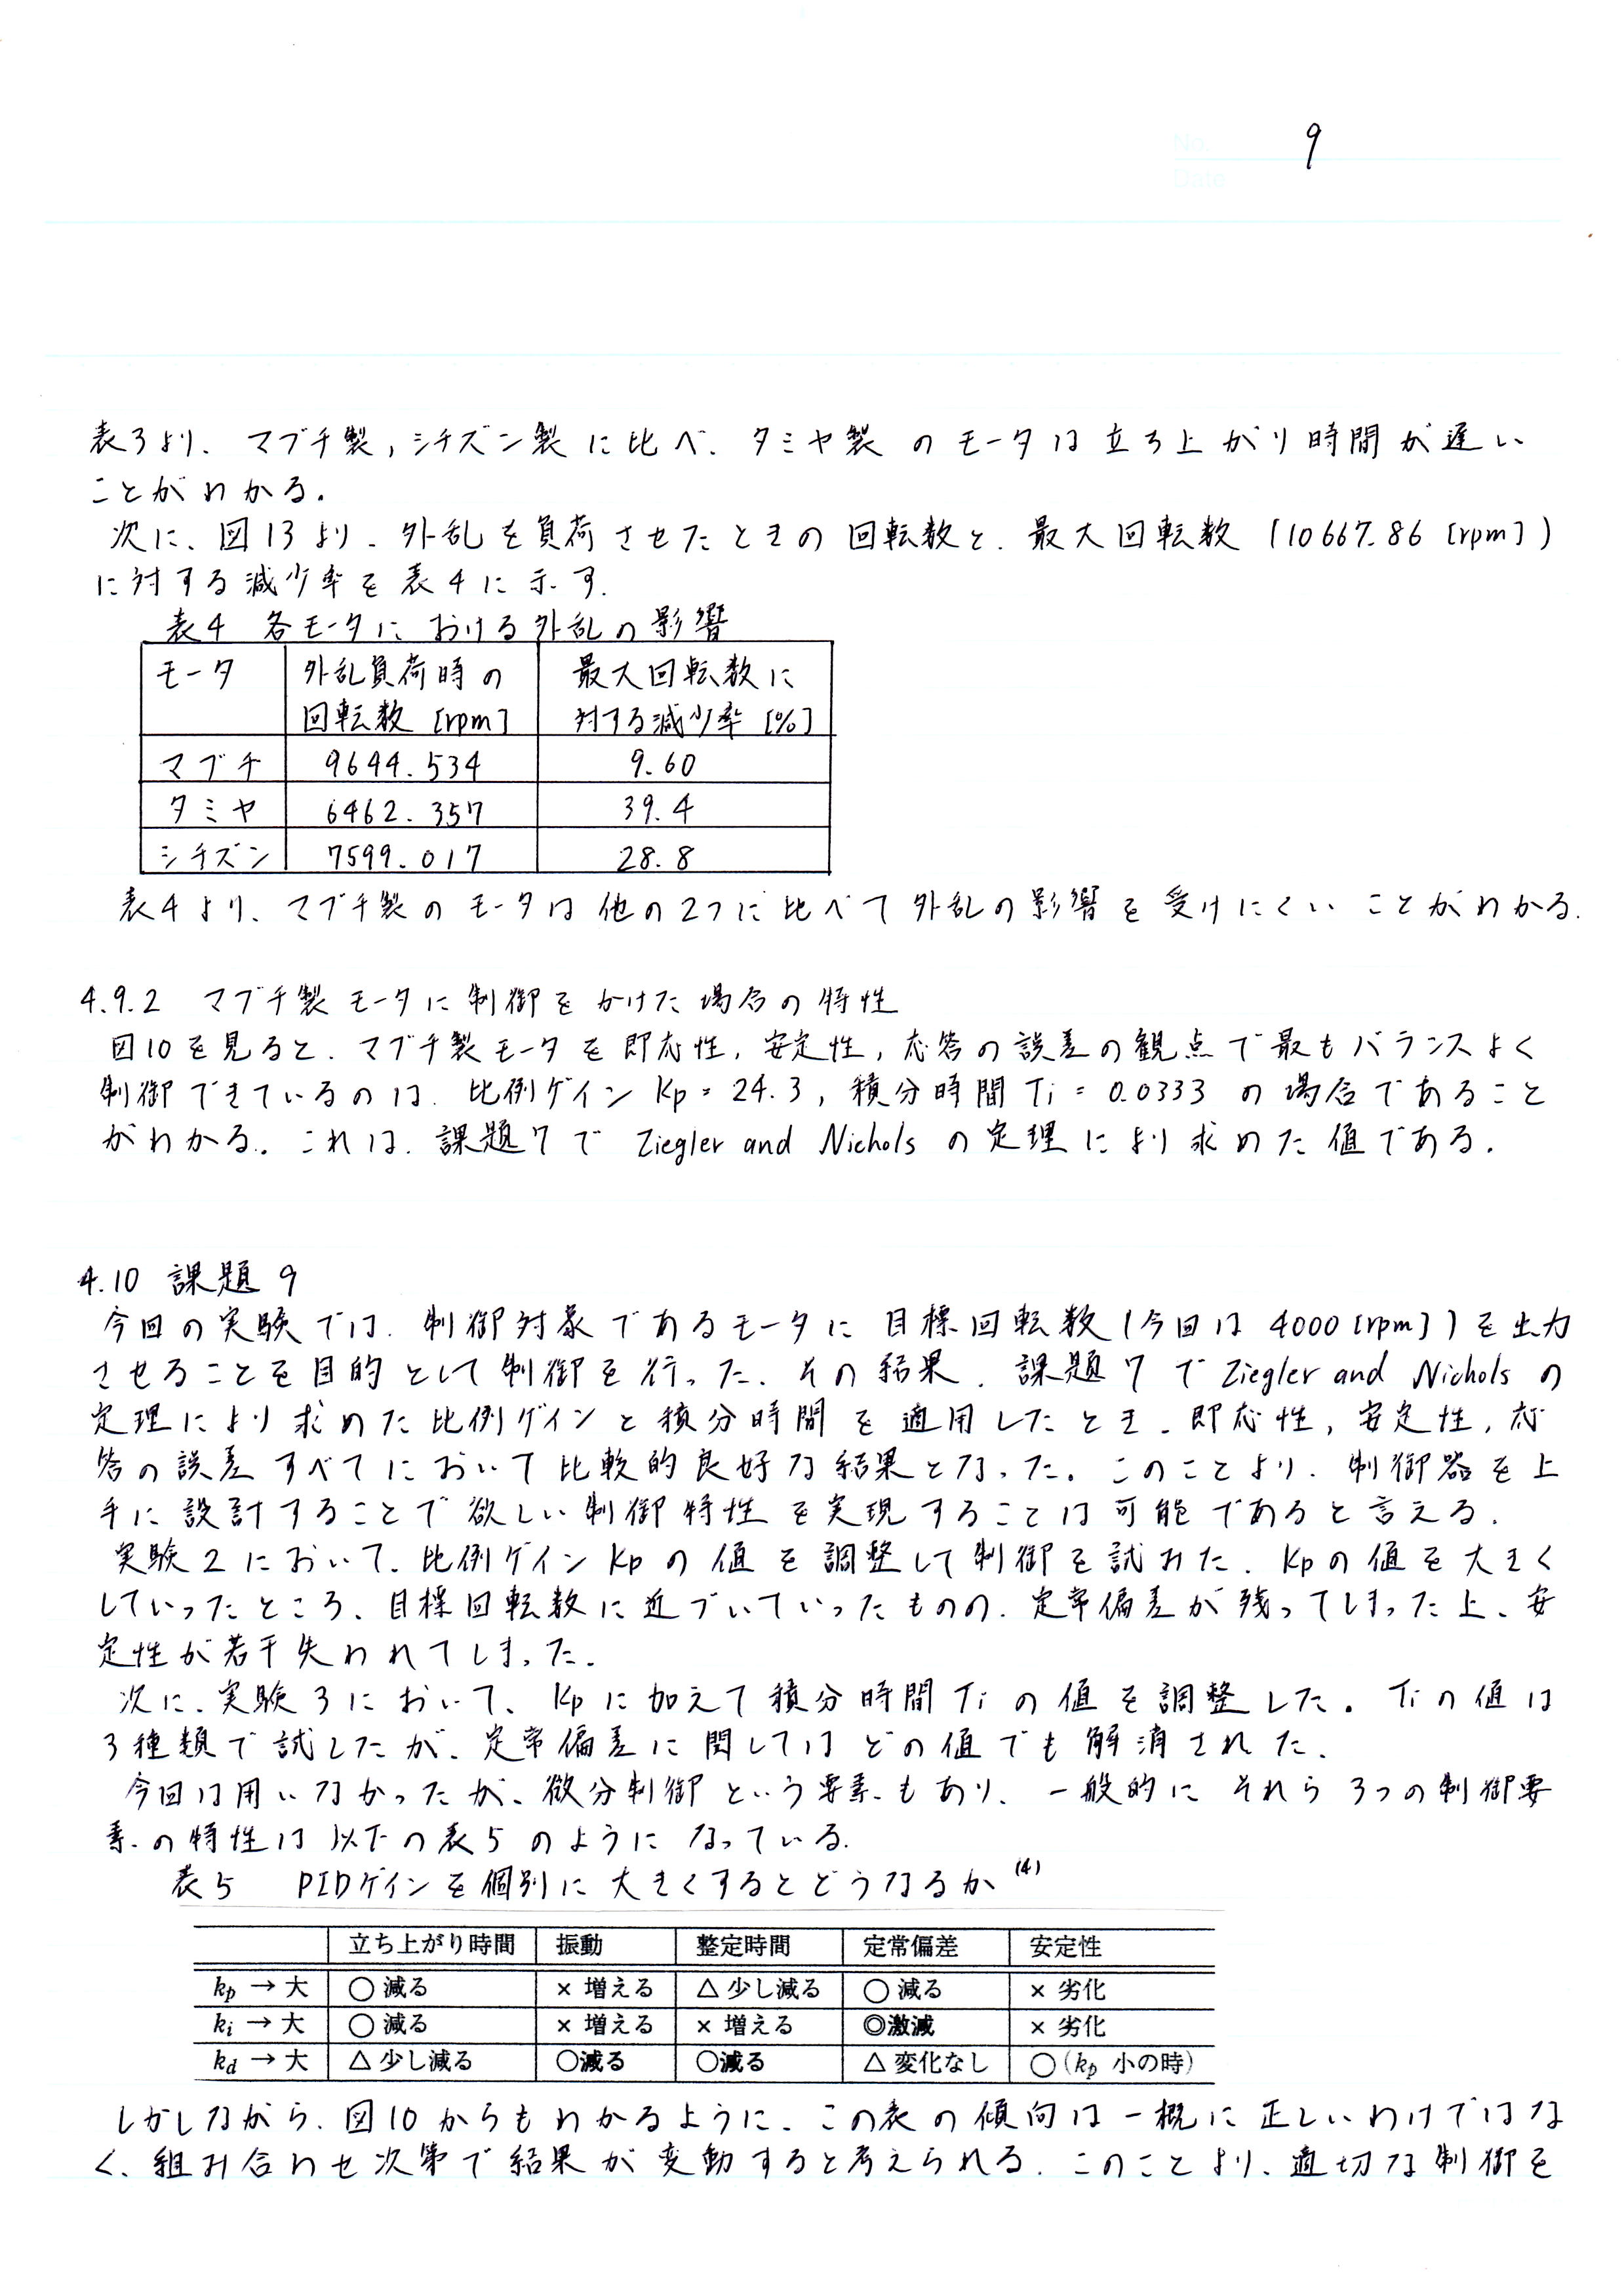 No. 9
Date
表3より、マブチ製,シチズン製に比べ、タミヤ製のモータは立ち上がり時間が遅い
ことがわかる.
次に、図13より、外乱を負荷させたときの回転数と、最大回転数(10667.86[rpm])
に対する減少率を表4に示す.
表4 各モータにおける外乱の影響
モータ 外乱負荷時の 最大回転数に
回転数[rpm] 対する減少率[%]
マブチ 9644.534 9.60
タミヤ 6462.357 39.4
シチズン 7599.017 28.8
表4より、マブチ製のモータは他の2つに比べて外乱の影響を受けにくいことがわかる.
4.9.2 マブチ製モータに制御をかけた場合の特性
図10を見ると、マブチ製モータを即応性,安定性,応答の誤差の観点で最もバランスよく
制御できているのは、比例ゲインKp=24.3,積分時間Ti=0.0333の場合であること
がわかる.これは、課題7でZiegler and Nicholsの定理により求めた値である.
4.10 課題9
今回の実験では、制御対象であるモータに目標回転数(今回は4000[rpm])を出力
させることを目的として制御を行った.その結果、課題7でZiegler and Nicholsの
定理により求めた比例ゲインと積分時間を適用したとき、即応性,安定性,応
答の誤差すべてにおいて比較的良好な結果となった.このことより、制御器を上
手に設計することで欲しい制御特性を実現することは可能であると言える.
実験2において、比例ゲインKpの値を調整して制御を試みた.Kpの値を大きく
していったところ、目標回転数に近づいていったものの、定常偏差が残ってしまった上、安
定性が若干失われてしまった.
次に、実験3において、Kpに加えて積分時間Tiの値を調整した.Tiの値は
3種類で試したが、定常偏差に関してはどの値でも解消された.
今回は用いなかったが、微分制御という要素もあり、一般的にそれら3つの制御要
素の特性は以下の表5のようになっている.
表5 PIDゲインを個別に大きくするとどうなるか(4)
立ち上がり時間 振動 整定時間 定常偏差 安定性
kp → 大 ○ 減る × 増える △ 少し減る ○ 減る × 劣化
ki → 大 ○ 減る × 増える × 増える ◎激減 × 劣化
kd → 大 △ 少し減る ○減る ○減る △ 変化なし ○ (kp 小の時)
しかしながら、図10からもわかるように、この表の傾向は一概に正しいわけではな
く、組み合わせ次第で結果が変動すると考えられる.このことより、適切な制御を